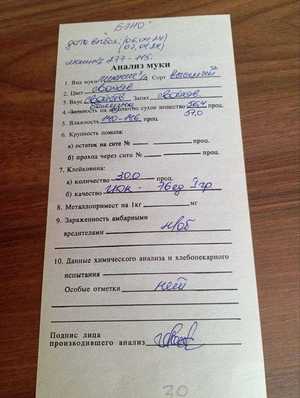 "БЭНО"
Анализ муки
1. Вид муки пшенич/я Сорт высший
2. Цвет свойств
3. Вкус свойств Запах свойств
4. Зольность на абсолютно сухое вещество проц.
57,0
5. Влажность проц.
6. Крупность помола:
а) остаток на сите № — проц.
б) проход через сито № — проц.
7. Клейковина:
а) количество 30,0 проц.
б) качество ИДК - 76ед I гр
8. Металлопримест на 1кг мг
9. Зараженность амбарными
вредителями н/об
10. Данные химического анализа и хлебопекарного
испытания
Особые отметки нет
Подпись лица
производившего анализ
30